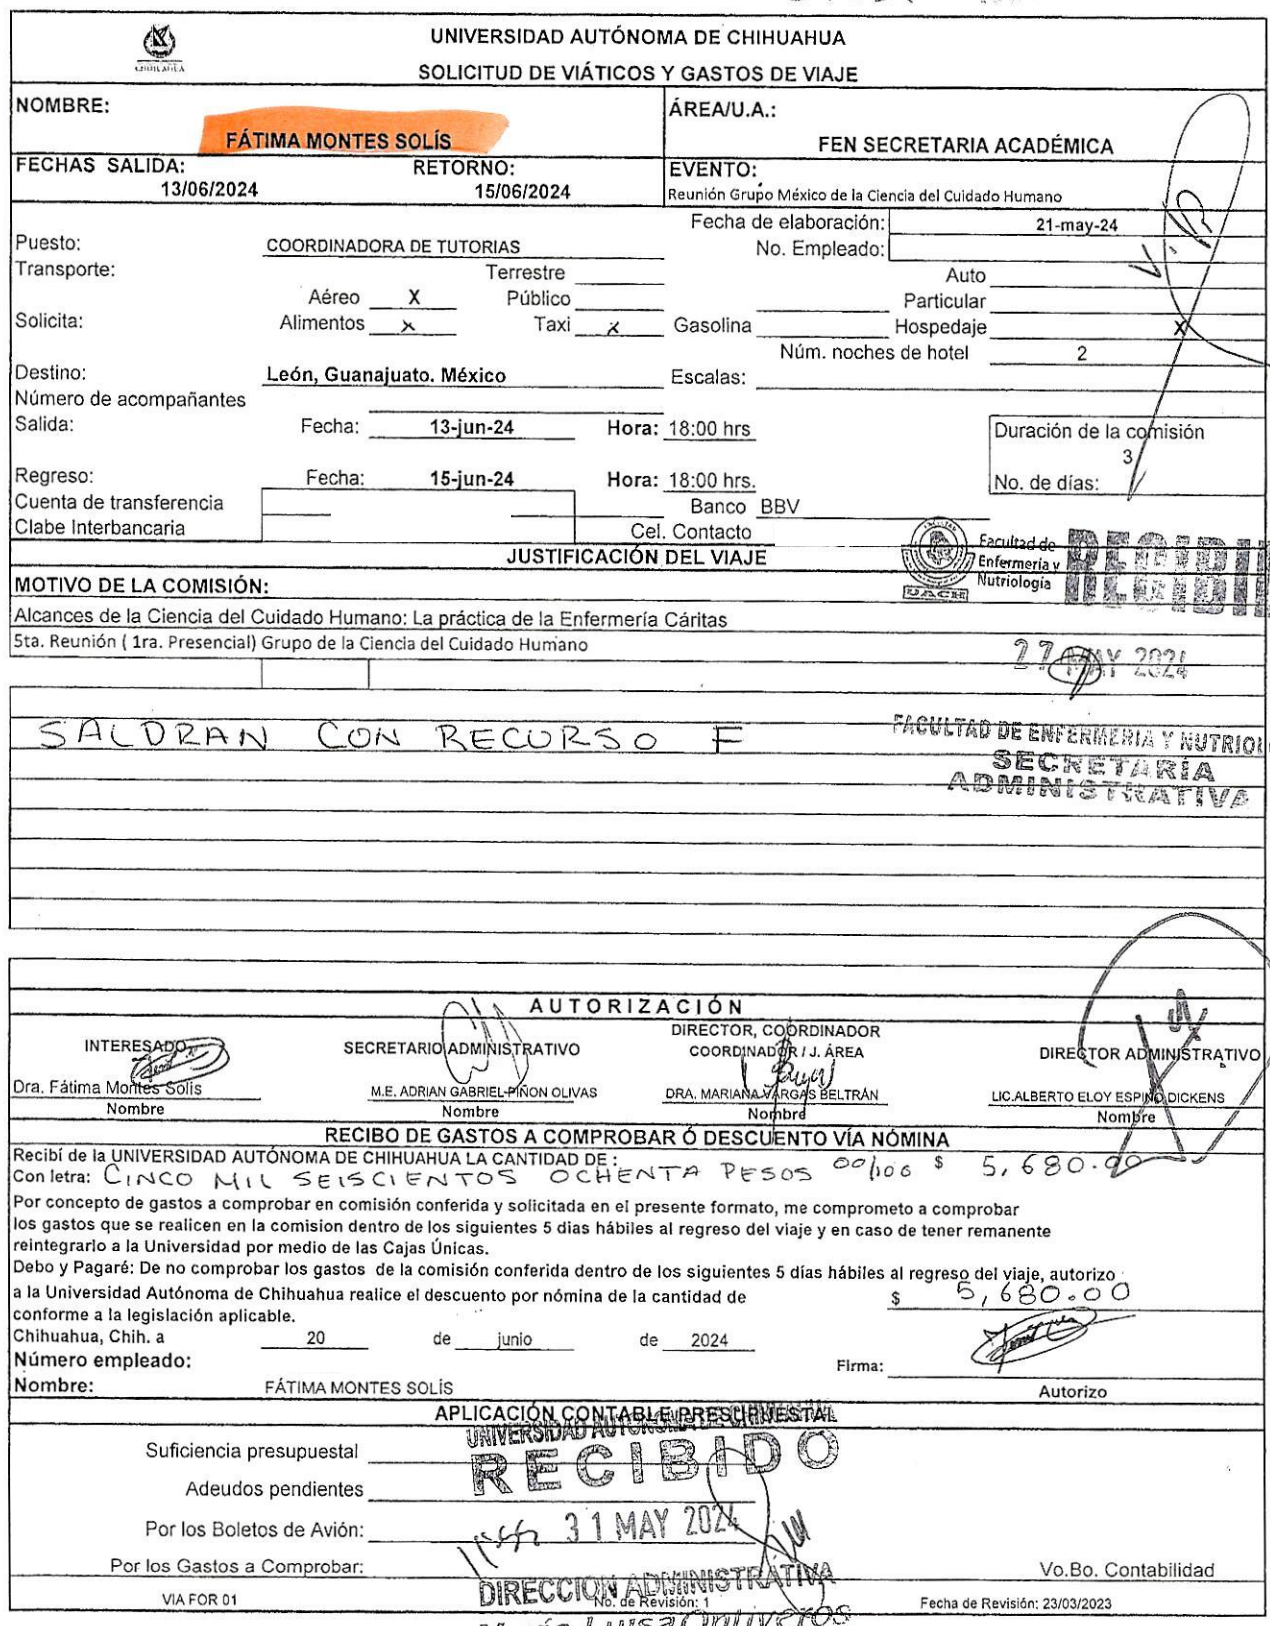 CHIHUAHUA
UNIVERSIDAD AUTÓNOMA DE CHIHUAHUA
SOLICITUD DE VIÁTICOS Y GASTOS DE VIAJE
NOMBRE:
FÁTIMA MONTES SOLÍS
ÁREA/U.A.:
FEN SECRETARIA ACADÉMICA
FECHAS SALIDA:
13/06/2024
RETORNO:
15/06/2024
EVENTO:
Reunión Grupo México de la Ciencia del Cuidado Humano
Fecha de elaboración: 21-may-24
Puesto: COORDINADORA DE TUTORIAS No. Empleado:
Transporte: Terrestre Auto
Aéreo X Público Particular
Solicita: Alimentos x Taxi x Gasolina Hospedaje X
Núm. noches de hotel 2
Destino: León, Guanajuato. México Escalas:
Número de acompañantes
Salida: Fecha: 13-jun-24 Hora: 18:00 hrs
Duración de la comisión
3
No. de días:
Regreso: Fecha: 15-jun-24 Hora: 18:00 hrs.
Cuenta de transferencia Banco BBV
Clabe Interbancaria Cel. Contacto
JUSTIFICACIÓN DEL VIAJE
FACULTAD
UACH
Facultad de
Enfermería y
Nutriología
MOTIVO DE LA COMISIÓN:
Alcances de la Ciencia del Cuidado Humano: La práctica de la Enfermería Cáritas
5ta. Reunión ( 1ra. Presencial) Grupo de la Ciencia del Cuidado Humano
27 MAY 2024
SALDRAN CON RECURSO F
FACULTAD DE ENFERMERIA Y NUTRIOL
SECRETARÍA
ADMINISTRATIVA
AUTORIZACIÓN
INTERESADO
Dra. Fátima Montes Solís
Nombre
SECRETARIO ADMINISTRATIVO
M.E. ADRIAN GABRIEL PIÑON OLIVAS
Nombre
DIRECTOR, COORDINADOR
COORDINADOR / J. ÁREA
DRA. MARIANA VARGAS BELTRÁN
Nombre
DIRECTOR ADMINISTRATIVO
LIC.ALBERTO ELOY ESPINO DICKENS
Nombre
RECIBO DE GASTOS A COMPROBAR Ó DESCUENTO VÍA NÓMINA
Recibí de la UNIVERSIDAD AUTÓNOMA DE CHIHUAHUA LA CANTIDAD DE :
Con letra: CINCO MIL SEISCIENTOS OCHENTA PESOS 00/100 $ 5,680.00
Por concepto de gastos a comprobar en comisión conferida y solicitada en el presente formato, me comprometo a comprobar
los gastos que se realicen en la comision dentro de los siguientes 5 dias hábiles al regreso del viaje y en caso de tener remanente
reintegrarlo a la Universidad por medio de las Cajas Únicas.
Debo y Pagaré: De no comprobar los gastos de la comisión conferida dentro de los siguientes 5 días hábiles al regreso del viaje, autorizo
a la Universidad Autónoma de Chihuahua realice el descuento por nómina de la cantidad de $ 5,680.00
conforme a la legislación aplicable.
Chihuahua, Chih. a 20 de junio de 2024
Número empleado: Firma:
Nombre: FÁTIMA MONTES SOLÍS Autorizo
APLICACIÓN CONTABLE PRESUPUESTAL
UNIVERSIDAD AUTONOMA DE CHIHUAHUA
RECIBIDO
Suficiencia presupuestal
Adeudos pendientes
Por los Boletos de Avión:
31 MAY 2024
Por los Gastos a Comprobar:
Vo.Bo. Contabilidad
DIRECCION ADMINISTRATIVA
VIA FOR 01 No. de Revisión: 1 Fecha de Revisión: 23/03/2023